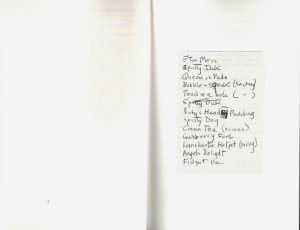 Eton Mess
Spotty Dick
Queen of Puds
Bubble + Squeak (savory)
Toad in a Hole ( - )
Spotty Dick
Baby's Head Pudding
Spotty Dog
Cream Tea (scones)
Gooseberry Fool
Lancaster Hotpot (savory)
Angels Delight
Fidget Pie